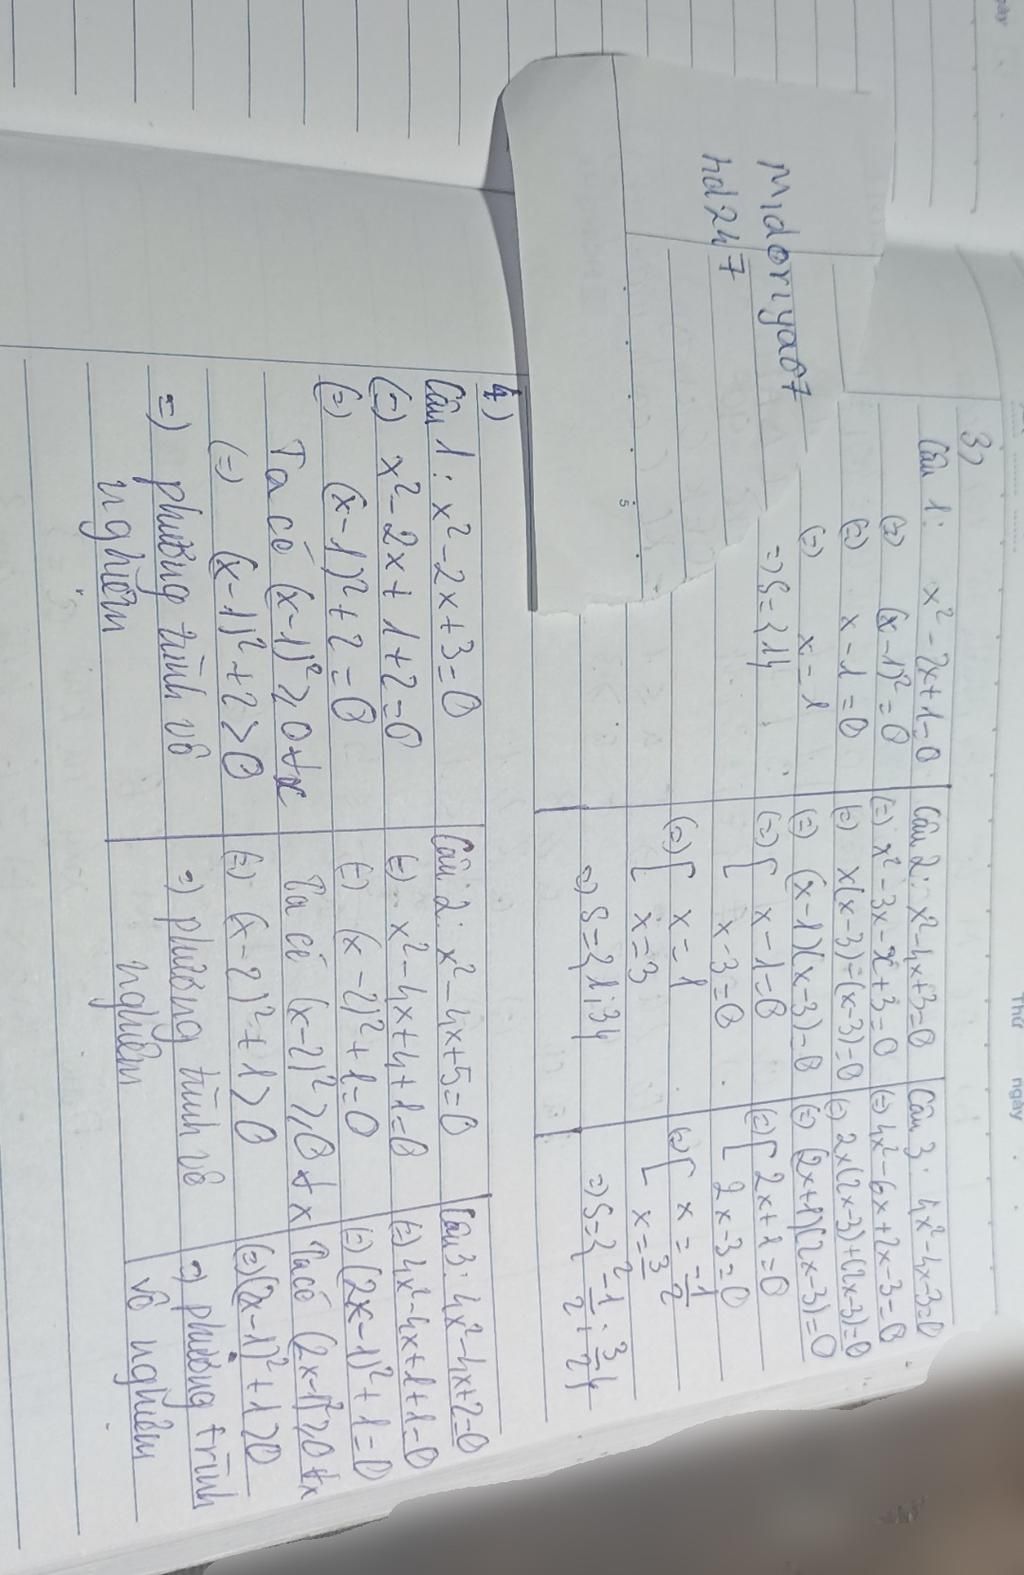 Thứ
ngày
ngày
3)
Câu 1: x² - 2x + 1 = 0
(=) (x - 1)² = 0
(=) x - 1 = 0
(=) x = 1
=> S = {1}
Câu 2: x² - 4x + 3 = 0
(=) x² - 3x - x + 3 = 0
(=) x(x - 3) - (x - 3) = 0
(=) (x - 1)(x - 3) = 0
(=) [ x - 1 = 0
[ x - 3 = 0
(=) [ x = 1
[ x = 3
=> S = {1; 3}
Câu 3: 4x² - 4x - 3 = 0
(=) 4x² - 6x + 2x - 3 = 0
(=) 2x(2x - 3) + (2x - 3) = 0
(=) (2x + 1)(2x - 3) = 0
(=) [ 2x + 1 = 0
[ 2x - 3 = 0
(=) [ x = -1/2
[ x = 3/2
=> S = {-1/2; 3/2}
Midoriya07
hd247
5
4)
Câu 1: x² - 2x + 3 = 0
(=) x² - 2x + 1 + 2 = 0
(=) (x - 1)² + 2 = 0
Ta có (x - 1)² ≥ 0 ∀x
(=) (x - 1)² + 2 > 0
=) phương trình vô
nghiệm
Câu 2: x² - 4x + 5 = 0
(=) x² - 4x + 4 + 1 = 0
(=) (x - 2)² + 1 = 0
Ta có (x - 2)² ≥ 0 ∀x
(=) (x - 2)² + 1 > 0
=) phương trình vô
nghiệm
Câu 3: 4x² - 4x + 2 = 0
(=) 4x² - 4x + 1 + 1 = 0
(=) (2x - 1)² + 1 = 0
Ta có (2x - 1)² ≥ 0 ∀x
(=) (2x - 1)² + 1 > 0
=) phương trình
vô nghiệm